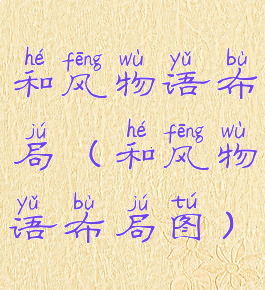 hé fēng wù yǔ bù
和风物语布
jú hé fēng wù
局（和风物
yǔ bù jú tú
语布局图）